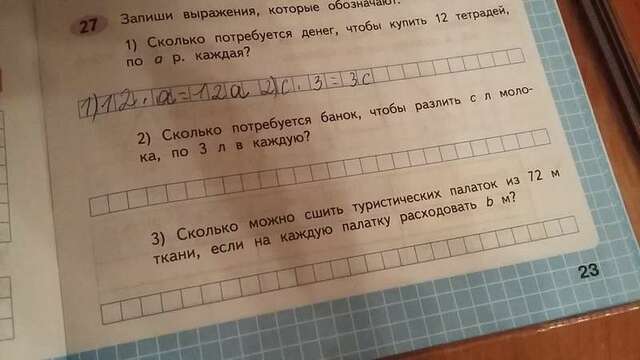 27 Запиши выражения, которые обозначают:
1) Сколько потребуется денег, чтобы купить 12 тетрадей,
по a р. каждая?
1) 12 · a = 12a 2) c · 3 = 3c
2) Сколько потребуется банок, чтобы разлить c л моло-
ка, по 3 л в каждую?
3) Сколько можно сшить туристических палаток из 72 м
ткани, если на каждую палатку расходовать b м?
23